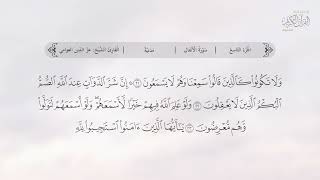 الجزء التاسع
سورة الأنفال
مدنية
القارئ الشيخ: عز الدين العوامي
القرآن الكريم
وَلَا تَكُونُوا۟ كَٱلَّذِينَ قَالُوا۟ سَمِعْنَا وَهُمْ لَا يَسْمَعُونَ ٢١ ۞ إِنَّ شَرَّ ٱلدَّوَآبِّ عِندَ ٱللَّهِ ٱلصُّمُّ
ٱلْبُكْمُ ٱلَّذِينَ لَا يَعْقِلُونَ ٢٢ وَلَوْ عَلِمَ ٱللَّهُ فِيهِمْ خَيْرًا لَّأَسْمَعَهُمْ ۖ وَلَوْ أَسْمَعَهُمْ لَتَوَلَّوا۟
وَّهُم مُّعْرِضُونَ ٢٣ يَـٰٓأَيُّهَا ٱلَّذِينَ ءَامَنُوا۟ ٱسْتَجِيبُوا۟ لِلَّهِ